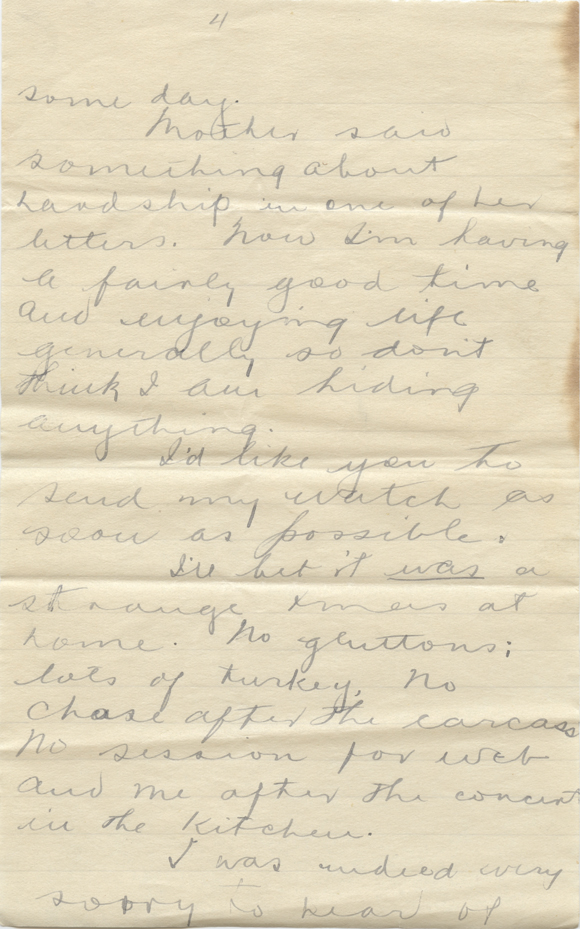 4
some day.
Mother said
something about
hardship in one of her
letters. Now I'm having
a fairly good time
and enjoying life
generally so don't
think I am hiding
anything.
I'd like you to
send my watch as
soon as possible.
I'll bet it was a
strange xmas at
home. No gluttons;
lots of turkey, No
chase after the carcass
No session for web
and me after the concert
in the kitchen.
I was indeed very
sorry to hear of